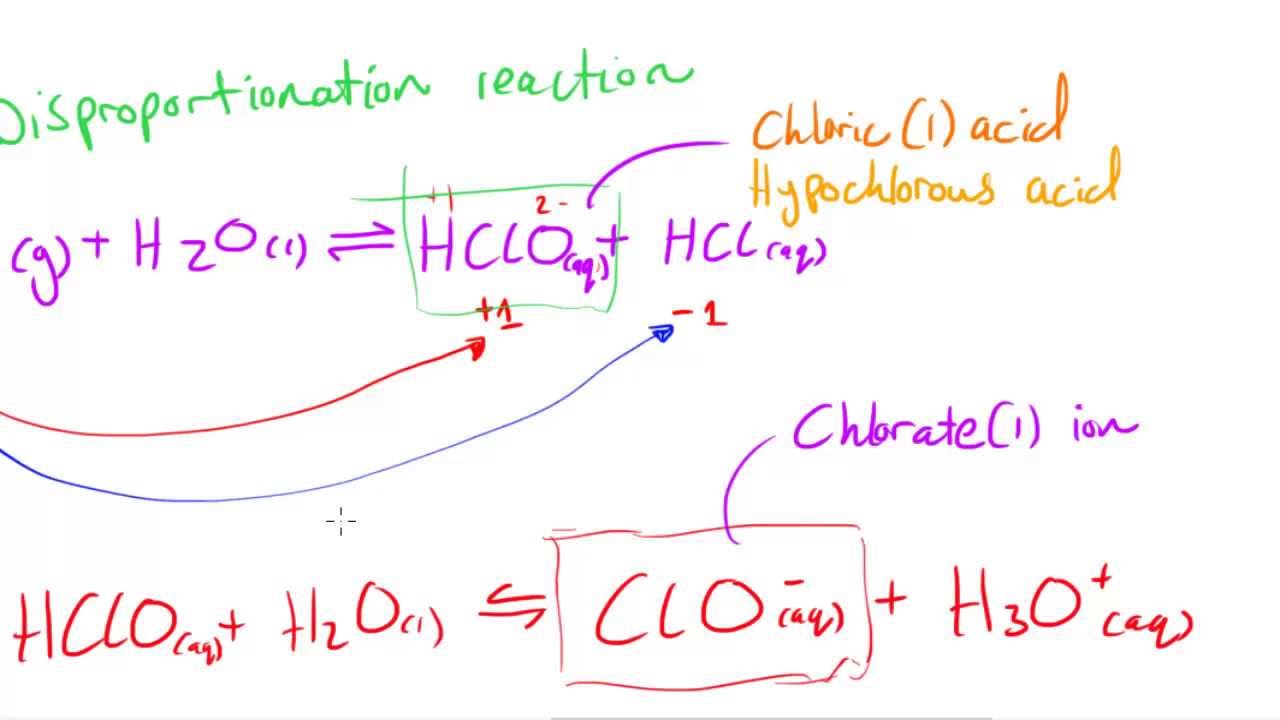 Disproportionation reaction
Chloric (1) acid
Hypochlorous acid
+1 2-
(g) + H2O(l) ⇌ HClO(aq) + HCl(aq)
+1 -1
Chlorate(1) ion
HClO(aq) + H2O(l) ⇌ ClO-(aq) + H3O+(aq)